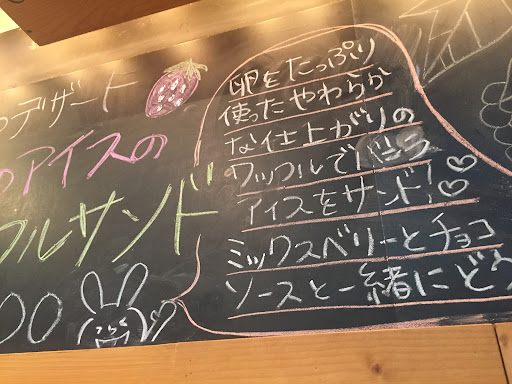 のデザート
のアイスの
フルサンド
00
卵をたっぷり
使ったやわらか
な仕上がりの
ワッフルでバニラ
アイスをサンド!♡♡
ミックスベリーとチョコ
ソースと一緒にどう